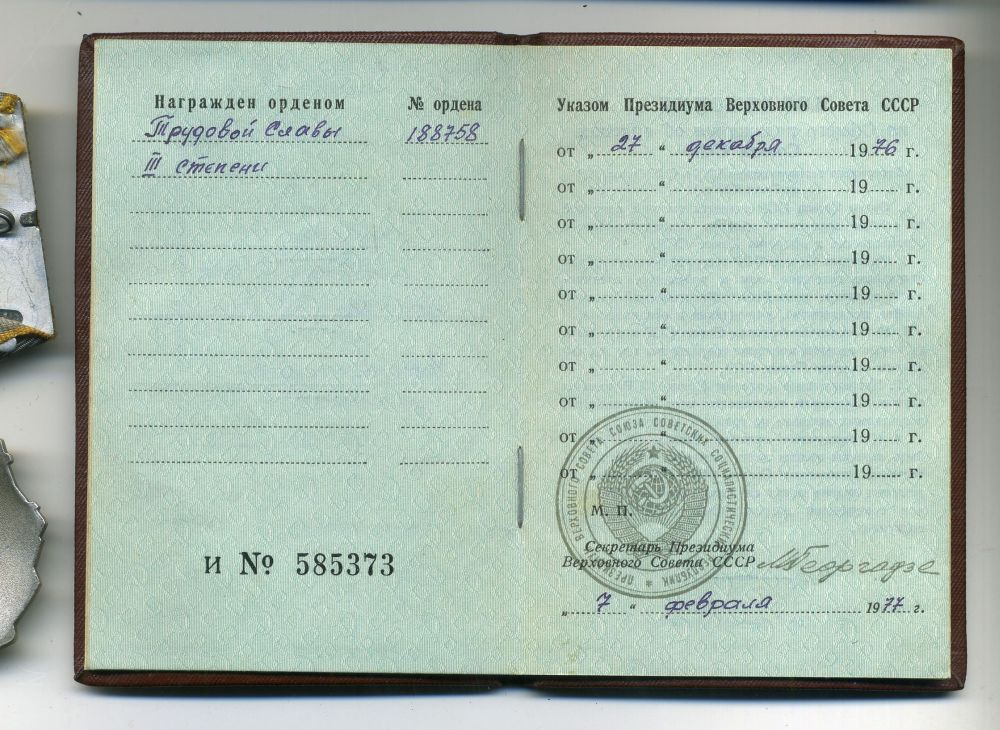 Награжден орденом
№ ордена
Трудовой Славы
188758
III степени
И № 585373
Указом Президиума Верховного Совета СССР
от „ 27 “ декабря 1976 г.
от „ “ 19 г.
от „ “ 19 г.
от „ “ 19 г.
от „ “ 19 г.
от „ “ 19 г.
от „ “ 19 г.
от „ “ 19 г.
от „ “ 19 г.
от „ “ 19 г.
ПРЕЗИДИУМ ВЕРХОВНОГО СОВЕТА СОЮЗА СОВЕТСКИХ СОЦИАЛИСТИЧЕСКИХ РЕСПУБЛИК
М. П.
Секретарь Президиума
Верховного Совета СССР МГеоргадзе
„ 7 “ февраля 1977 г.